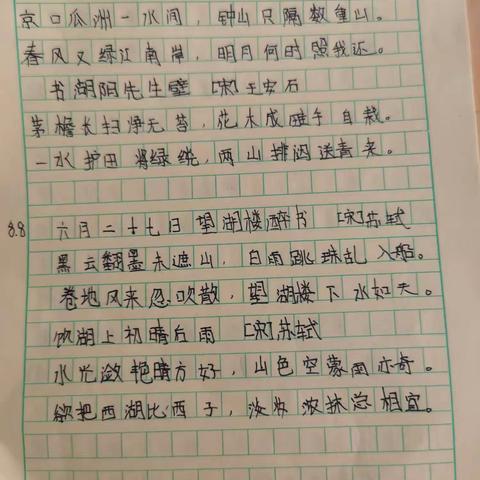 京口瓜洲一水间，钟山只隔数重山。
春风又绿江南岸，明月何时照我还。
书湖阳先生壁 [宋]王安石
茅檐长扫净无苔，花木成畦手自栽。
一水护田将绿绕，两山排闼送青来。
8.8 六月二十七日望湖楼醉书 [宋]苏轼
黑云翻墨未遮山，白雨跳珠乱入船。
卷地风来忽吹散，望湖楼下水如天。
饮湖上初晴后雨 [宋]苏轼
水光潋艳晴方好，山色空蒙雨亦奇。
欲把西湖比西子，淡妆浓抹总相宜。